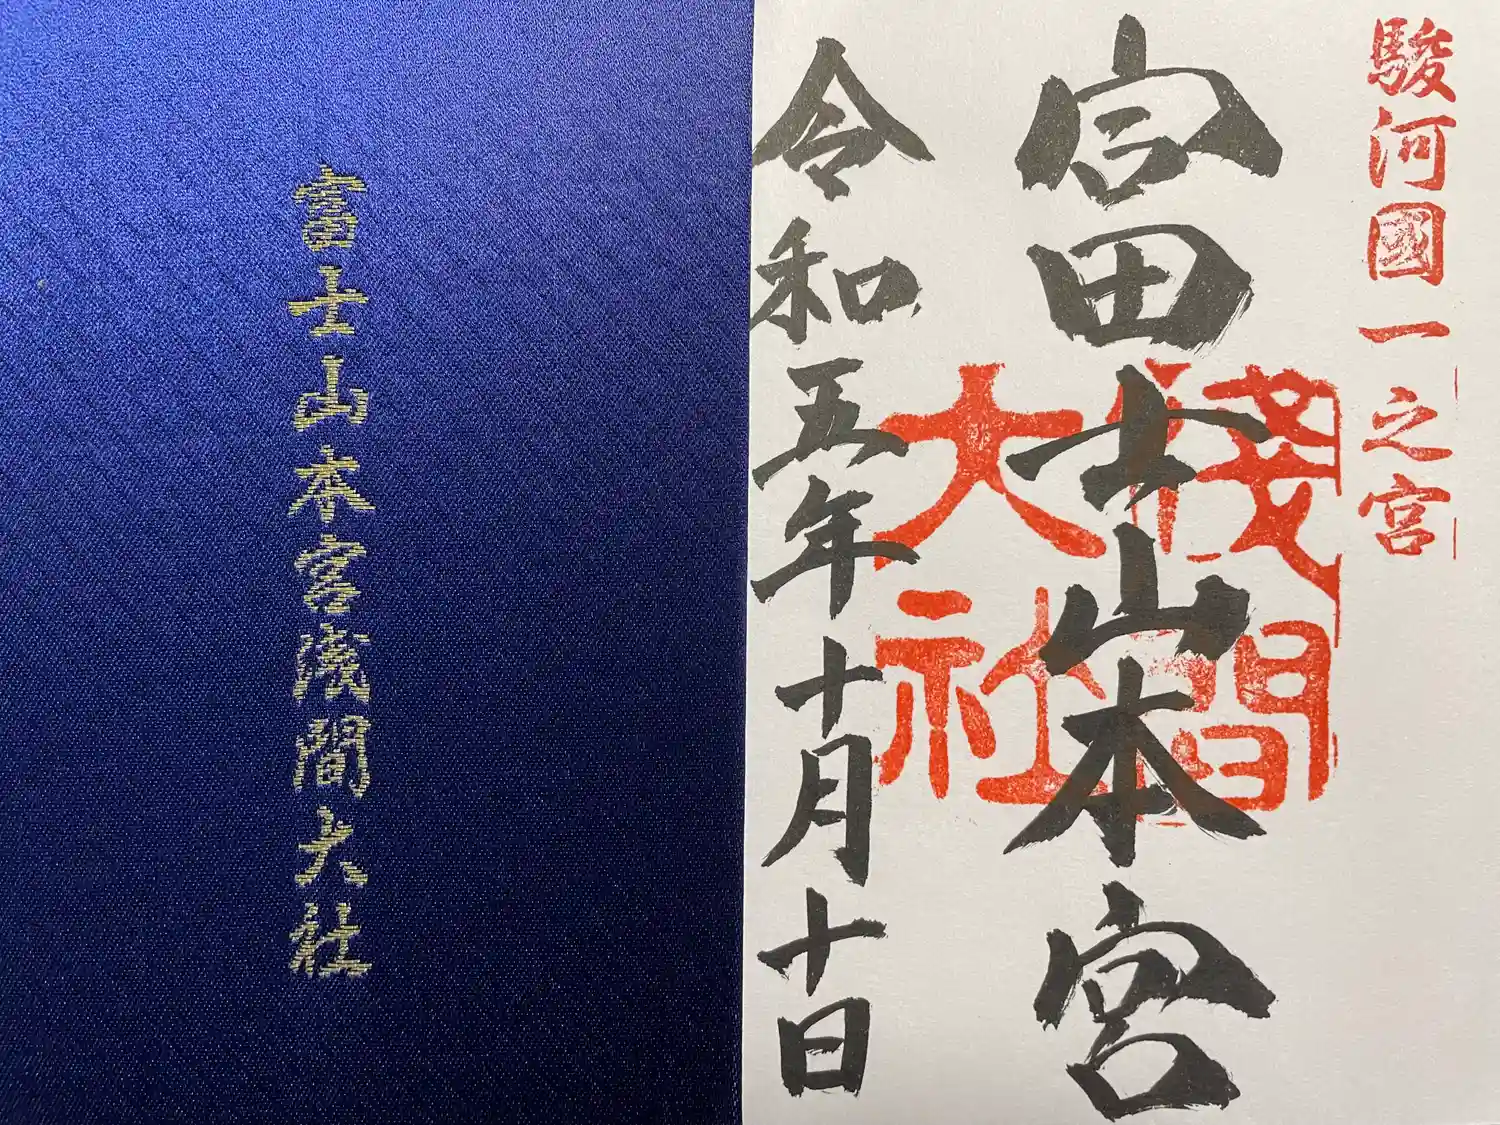 富士山本宮浅間大社
駿河國一之宮
富士山本宮
淺間大社
令和五年十月十日